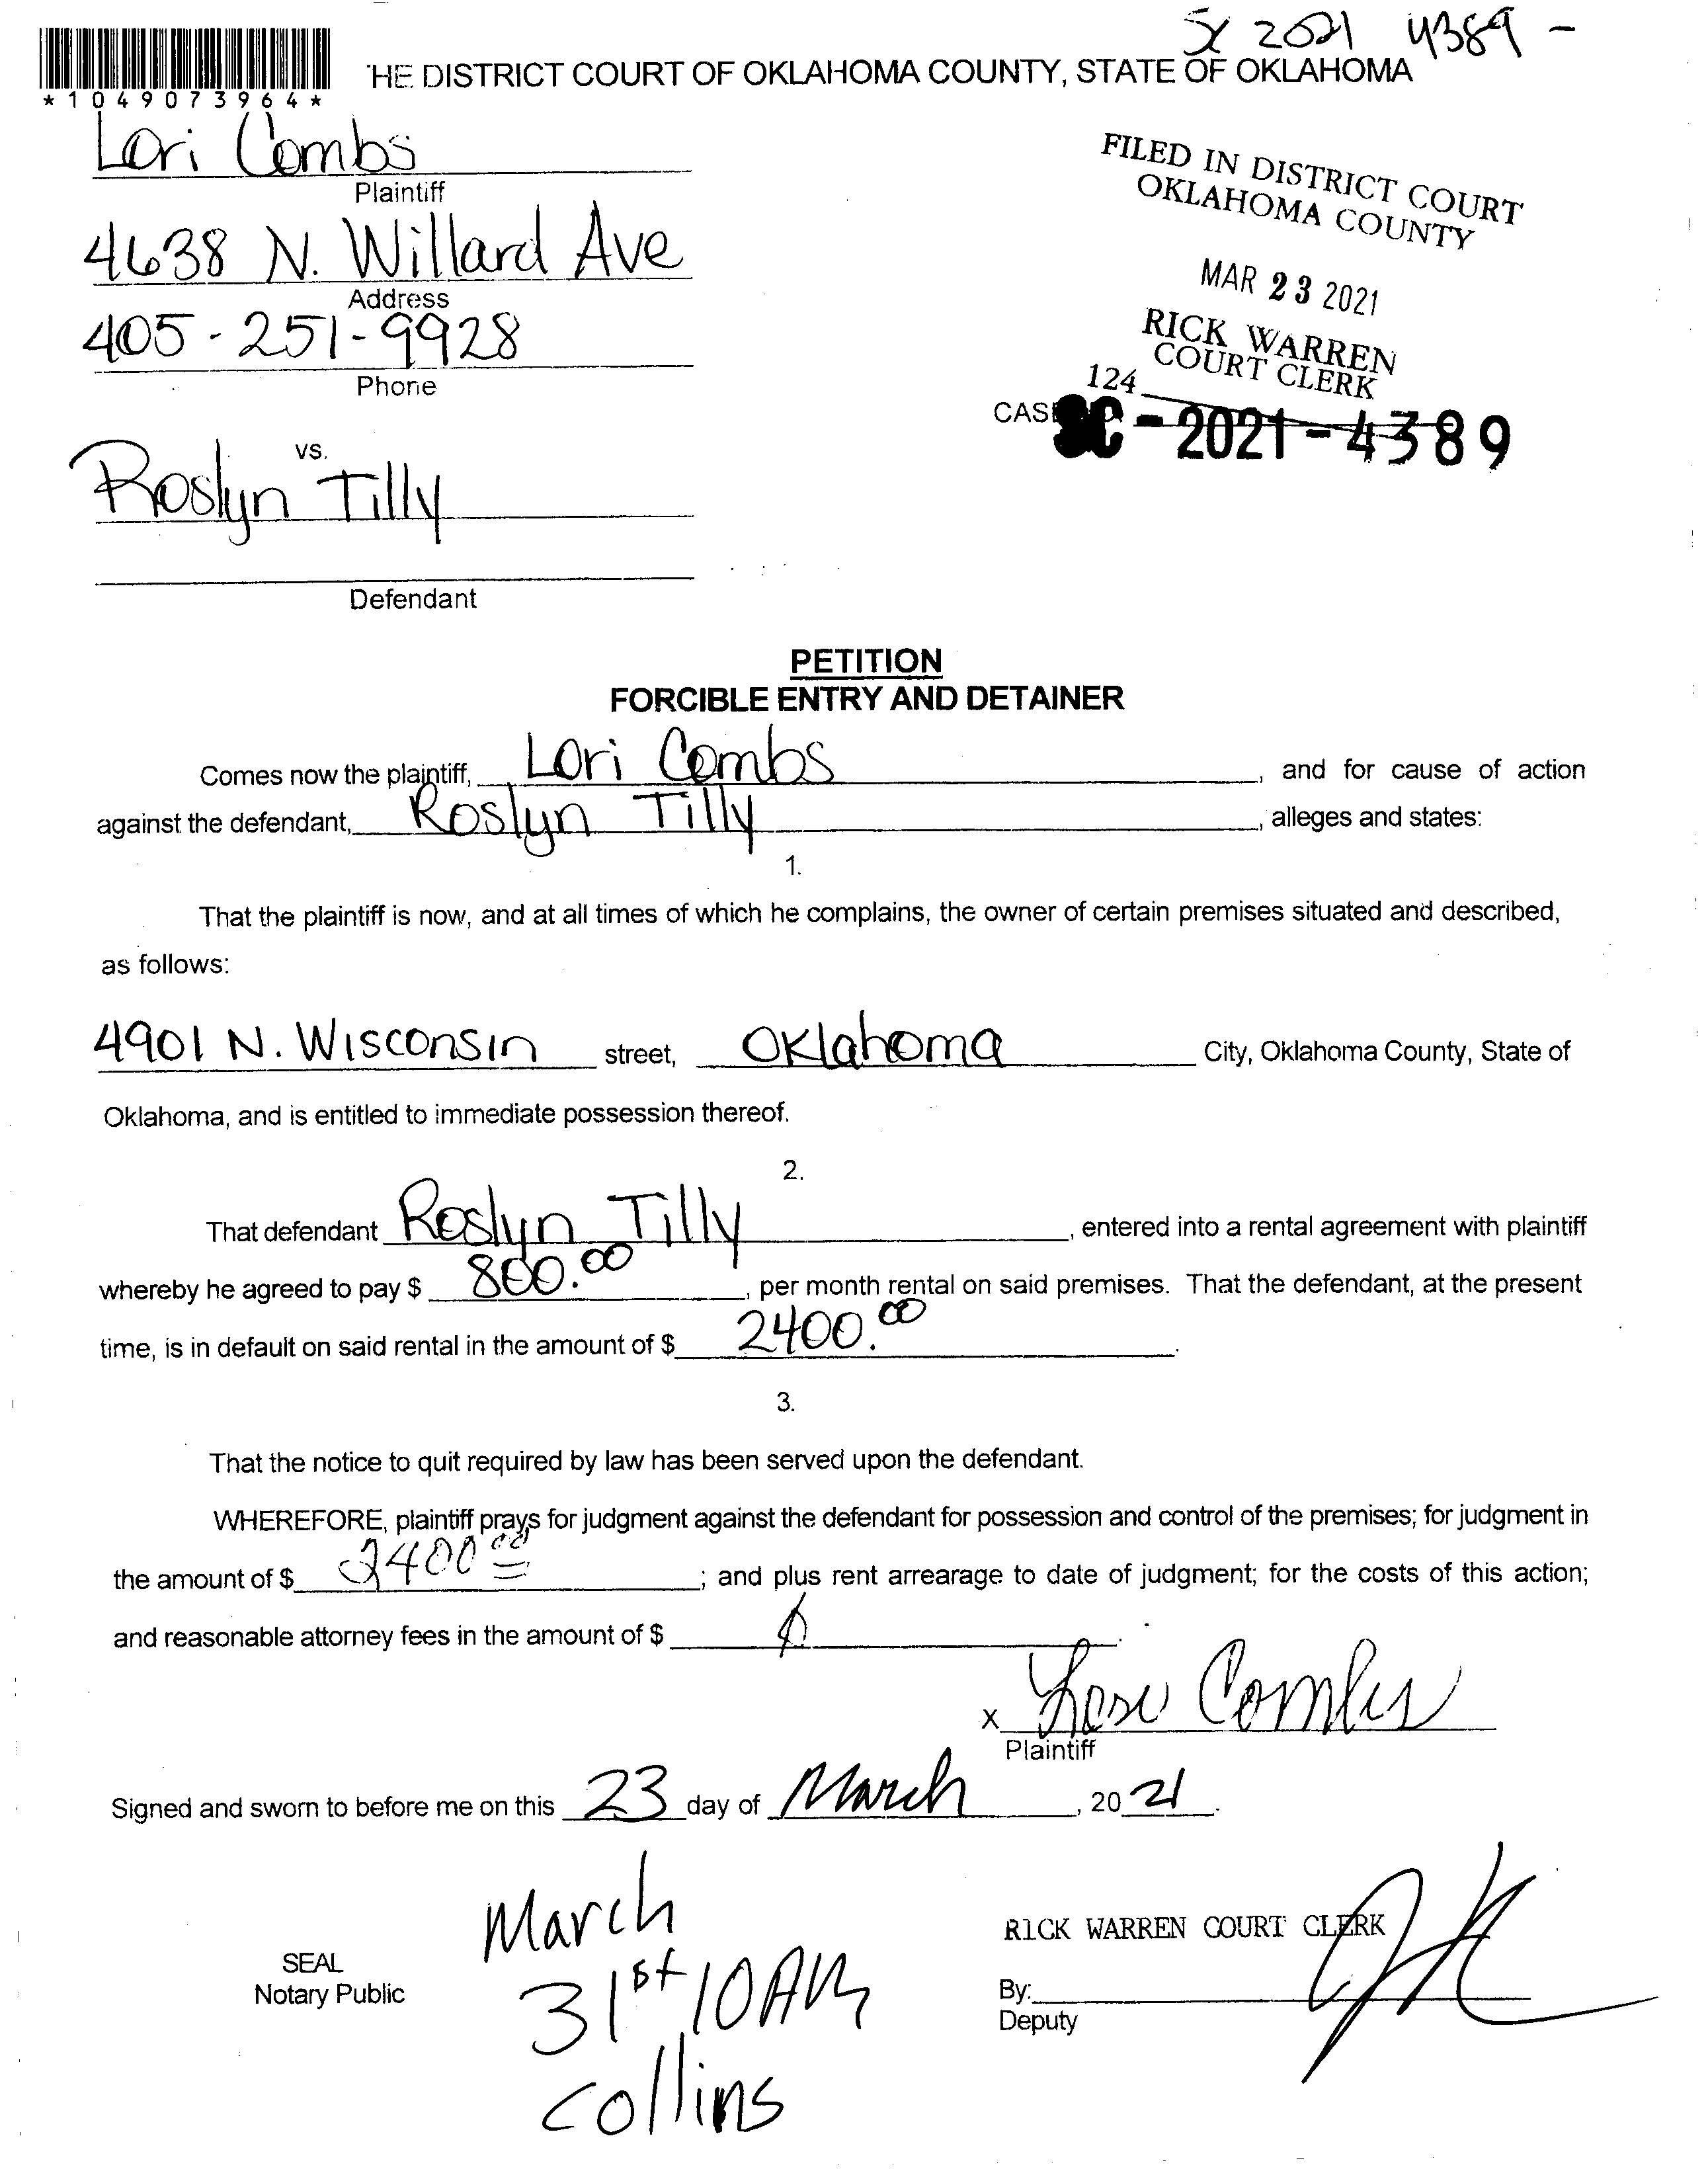 SC 2021 4389 -
HE DISTRICT COURT OF OKLAHOMA COUNTY, STATE OF OKLAHOMA
*1049073964*
Lori Combs
Plaintiff
4638 N. Willard Ave
Address
405-251-9928
Phone
FILED IN DISTRICT COURT
OKLAHOMA COUNTY
MAR 23 2021
RICK WARREN
COURT CLERK
124
CAS SC-2021-4389
vs.
Roslyn Tilly
Defendant
PETITION
FORCIBLE ENTRY AND DETAINER
Comes now the plaintiff, Lori Combs, and for cause of action
against the defendant, Roslyn Tilly, alleges and states:
1.
That the plaintiff is now, and at all times of which he complains, the owner of certain premises situated and described,
as follows:
4901 N. Wisconsin street, Oklahoma City, Oklahoma County, State of
Oklahoma, and is entitled to immediate possession thereof.
2.
That defendant Roslyn Tilly, entered into a rental agreement with plaintiff
whereby he agreed to pay $ 800.00, per month rental on said premises. That the defendant, at the present
time, is in default on said rental in the amount of $ 2400.00.
3.
That the notice to quit required by law has been served upon the defendant.
WHEREFORE, plaintiff prays for judgment against the defendant for possession and control of the premises; for judgment in
the amount of $ 2400 00; and plus rent arrearage to date of judgment; for the costs of this action;
and reasonable attorney fees in the amount of $
x Lori Combs
Plaintiff
Signed and sworn to before me on this 23 day of March, 20 21.
March
31st 10AM
Collins
SEAL
Notary Public
RICK WARREN COURT CLERK
By:
Deputy